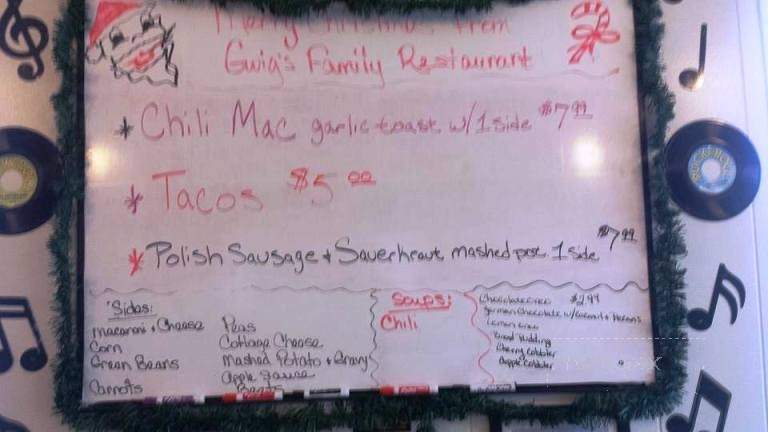 Merry Christmas from
Gwig's Family Restaurant
* Chili Mac garlic toast w/1side $7.99
* Tacos $5.00
* Polish Sausage + Sauerkraut mashed pot 1 side $7.99
Sides:
Macaroni + Cheese
Corn
Green Beans
Carrots
Peas
Cottage Cheese
Mashed Potato + Gravy
Apple Sauce
Beets
Soups:
Chili
$2.99
German Chocolate w/Coconut + Pecans
Bread Pudding
Cherry Cobbler
Apple Cobbler